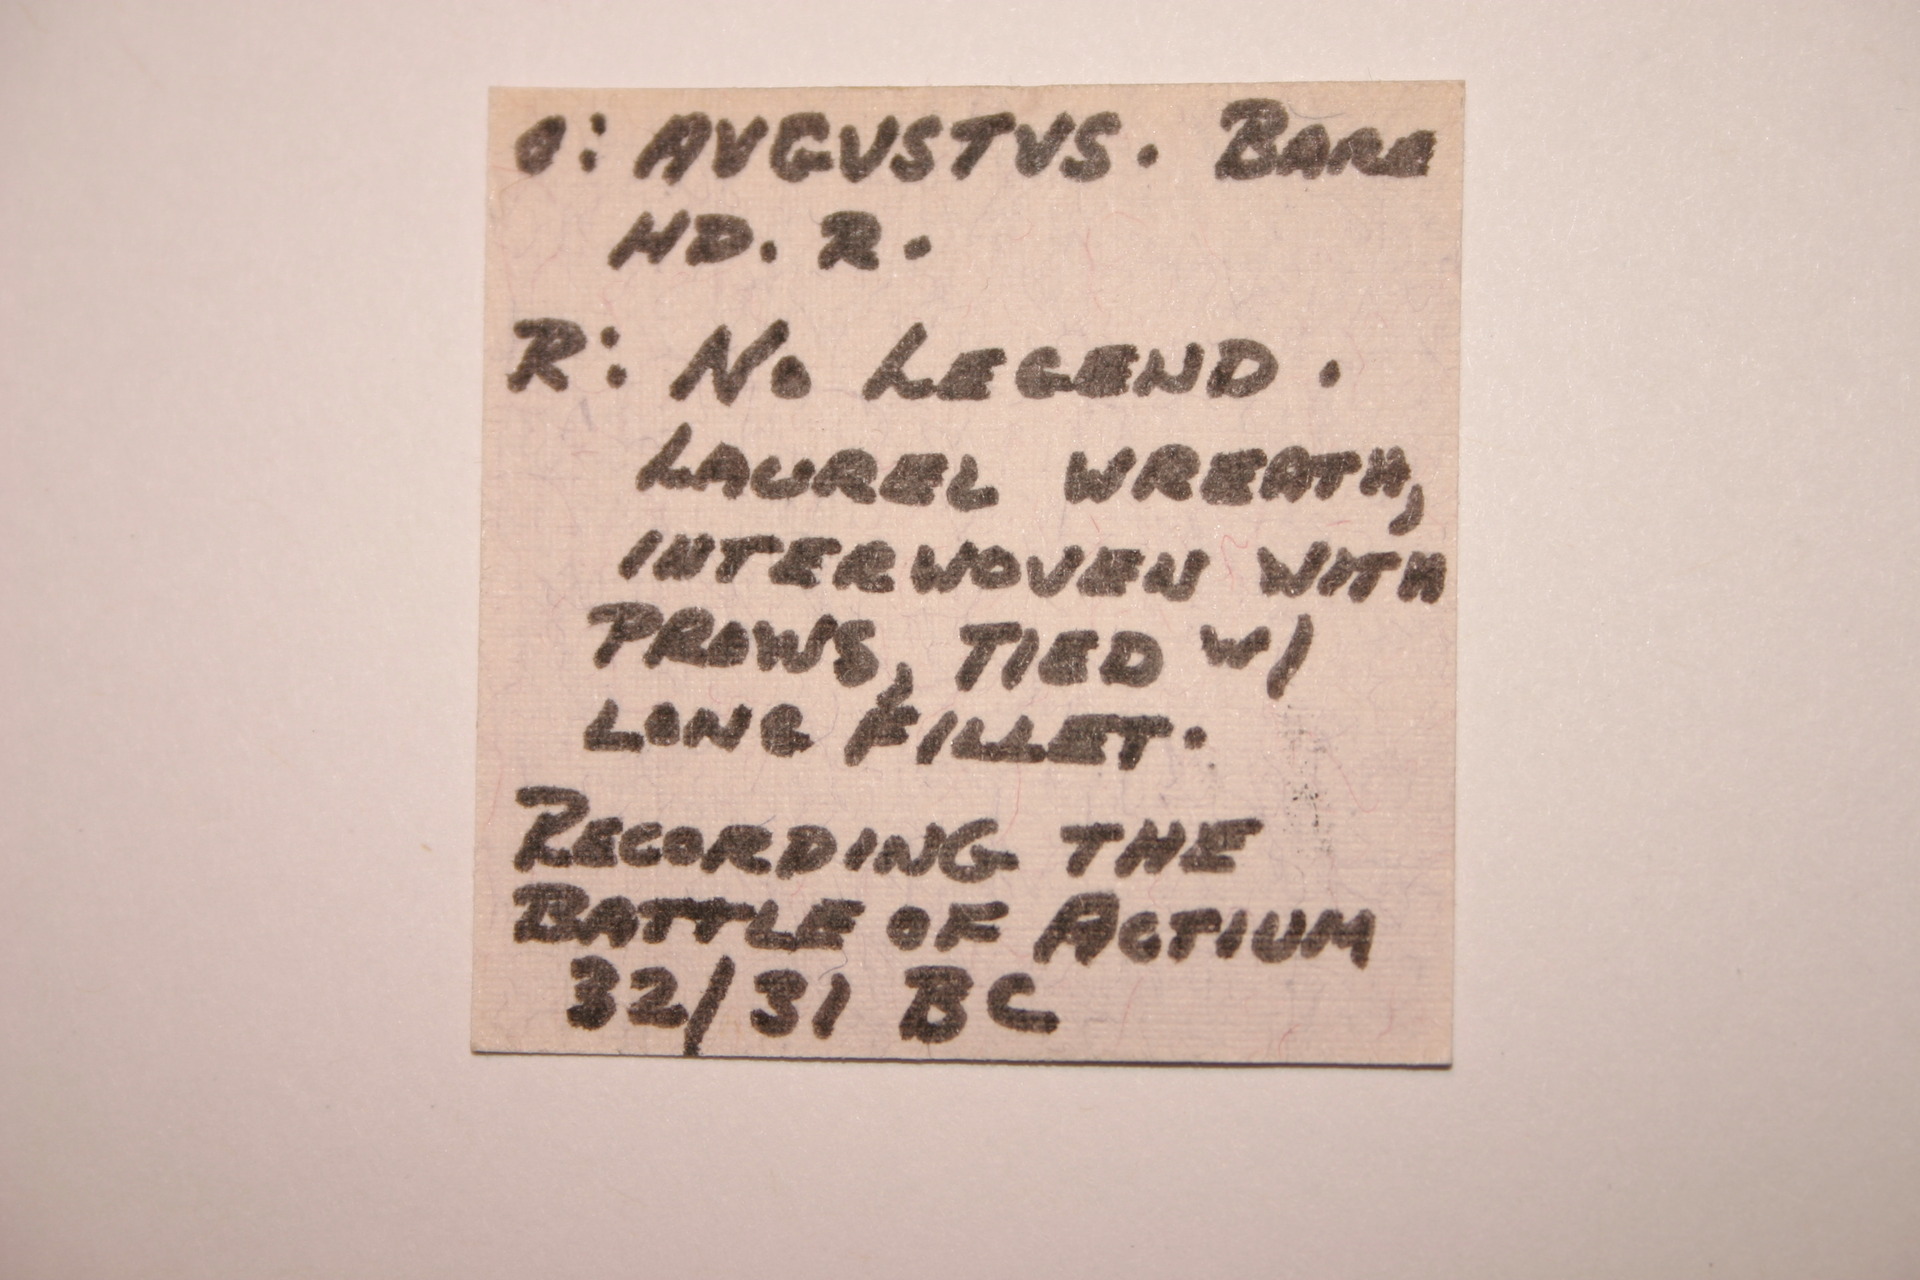 O: AVGVSTVS. BARE
HD. R.
R: NO LEGEND.
LAUREL WREATH,
INTERWOVEN WITH
PROWS, TIED W/
LONG FILLET.
RECORDING THE
BATTLE OF ACTIUM
32/31 BC